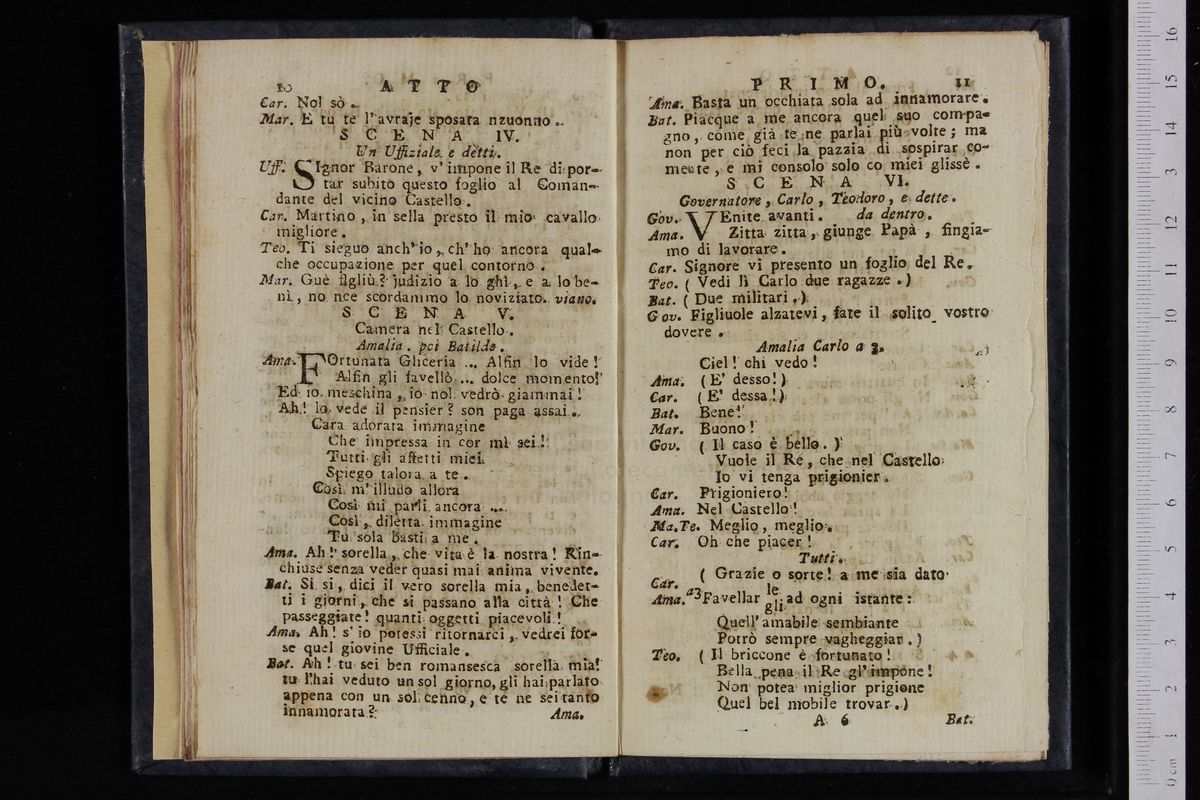 10 ATTO
Car. Nol sò.
Mar. E tu te l'avraje sposata nzuonno.
SCENA IV.
Un Uffiziale e detti.
Uff. SIgnor Barone, v'impone il Re di por-
tar subito questo foglio al Coman-
dante del vicino Castello.
Car. Martino, in sella presto il mio cavallo
migliore.
Teo. Ti sieguo anch'io, ch'ho ancora qual-
che occupazione per quel contorno.
Mar. Guè figliù? judizio a lo ghi, e a lo be-
nì, no nce scordammo lo noviziato. viano.
SCENA V.
Camera nel Castello.
Amalia. poi Batilde.
Ama. FOrtunata Gliceria ... Alfin lo vide!
Alfin gli favellò ... dolce momento!
Ed io meschina, io nol vedrò giammai!
Ah! lo vede il pensier? son paga assai.
Cara adorata immagine
Che impressa in cor mi sei!
Tutti gli affetti miei
Spiego talora a te.
Così m'illudo allora
Così mi parli ancora ....
Così, diletta immagine
Tu sola basti a me.
Ama. Ah! sorella, che vita è la nostra! Rin-
chiuse senza veder quasi mai anima vivente.
Bat. Si si, dici il vero sorella mia, benedet-
ti i giorni, che si passano alla città! Che
passeggiate! quanti oggetti piacevoli!
Ama. Ah! s'io potessi ritornarci, vedrei for-
se quel giovine Ufficiale.
Bat. Ah! tu sei ben romansesca sorella mia!
tu l'hai veduto un sol giorno, gli hai parlato
appena con un sol cenno, e te ne sei tanto
innamorata? Ama.
PRIMO. 11
Ama. Basta un occhiata sola ad innamorare.
Bat. Piacque a me ancora quel suo compa-
gno, come già te ne parlai più volte; ma
non per ciò feci la pazzia di sospirar co-
me te, e mi consolo solo co miei glissè.
SCENA VI.
Governatore, Carlo, Teodoro, e dette.
Gov. VEnite avanti. da dentro.
Ama. Zitta zitta, giunge Papà, fingia-
mo di lavorare.
Car. Signore vi presento un foglio del Re.
Teo. ( Vedi lì Carlo due ragazze.)
Bat. ( Due militari.)
Gov. Figliuole alzatevi, fate il solito vostro
dovere.
Amalia Carlo a 3.
Ciel! chi vedo!
Ama. (E' desso!)
Car. (E' dessa!)
Bat. Bene!
Mar. Buono!
Gov. ( Il caso è bello. )
Vuole il Re, che nel Castello
Io vi tenga prigionier.
Car. Prigioniero!
Ama. Nel Castello!
Ma.Te. Meglio, meglio.
Car. Oh che piacer!
Tutti.
Car. ( Grazie o sorte! a me sia dato
Ama. a3 Favellar le gli ad ogni istante:
Quell'amabile sembiante
Potrò sempre vagheggiar.)
Teo. ( Il briccone è fortunato!
Bella pena il Re gl'impone!
Non potea miglior prigione
Quel bel mobile trovar.)
A 6 Bat.
16
15
14
13
12
11
10
9
8
7
6
5
4
3
2
1
0 cm